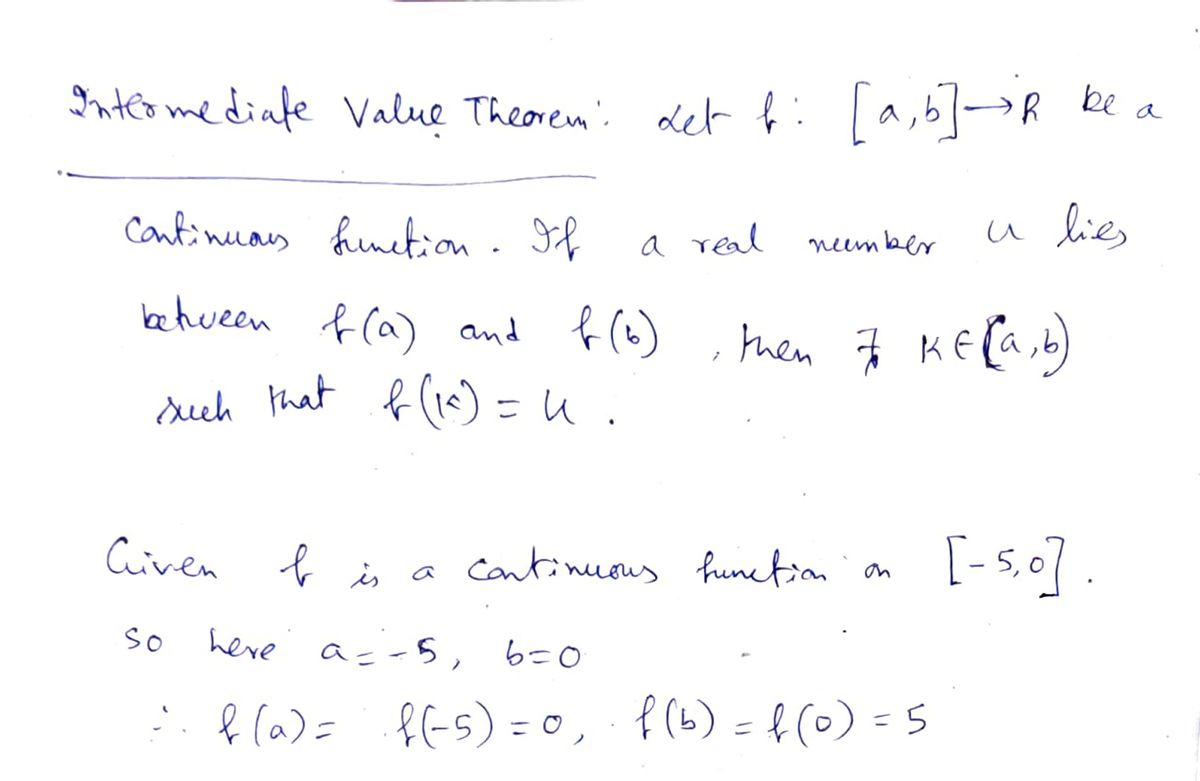 Intermediate Value Theorem: Let f: [a,b]→R be a
Continuous function. If a real number u lies
between f(a) and f(b), then ∃ K∈[a,b)
such that f(K) = u.
Given f is a continuous function on [-5,0].
so here a=-5, b=0
∴ f(a)= f(-5)=0, f(b)=f(0)=5